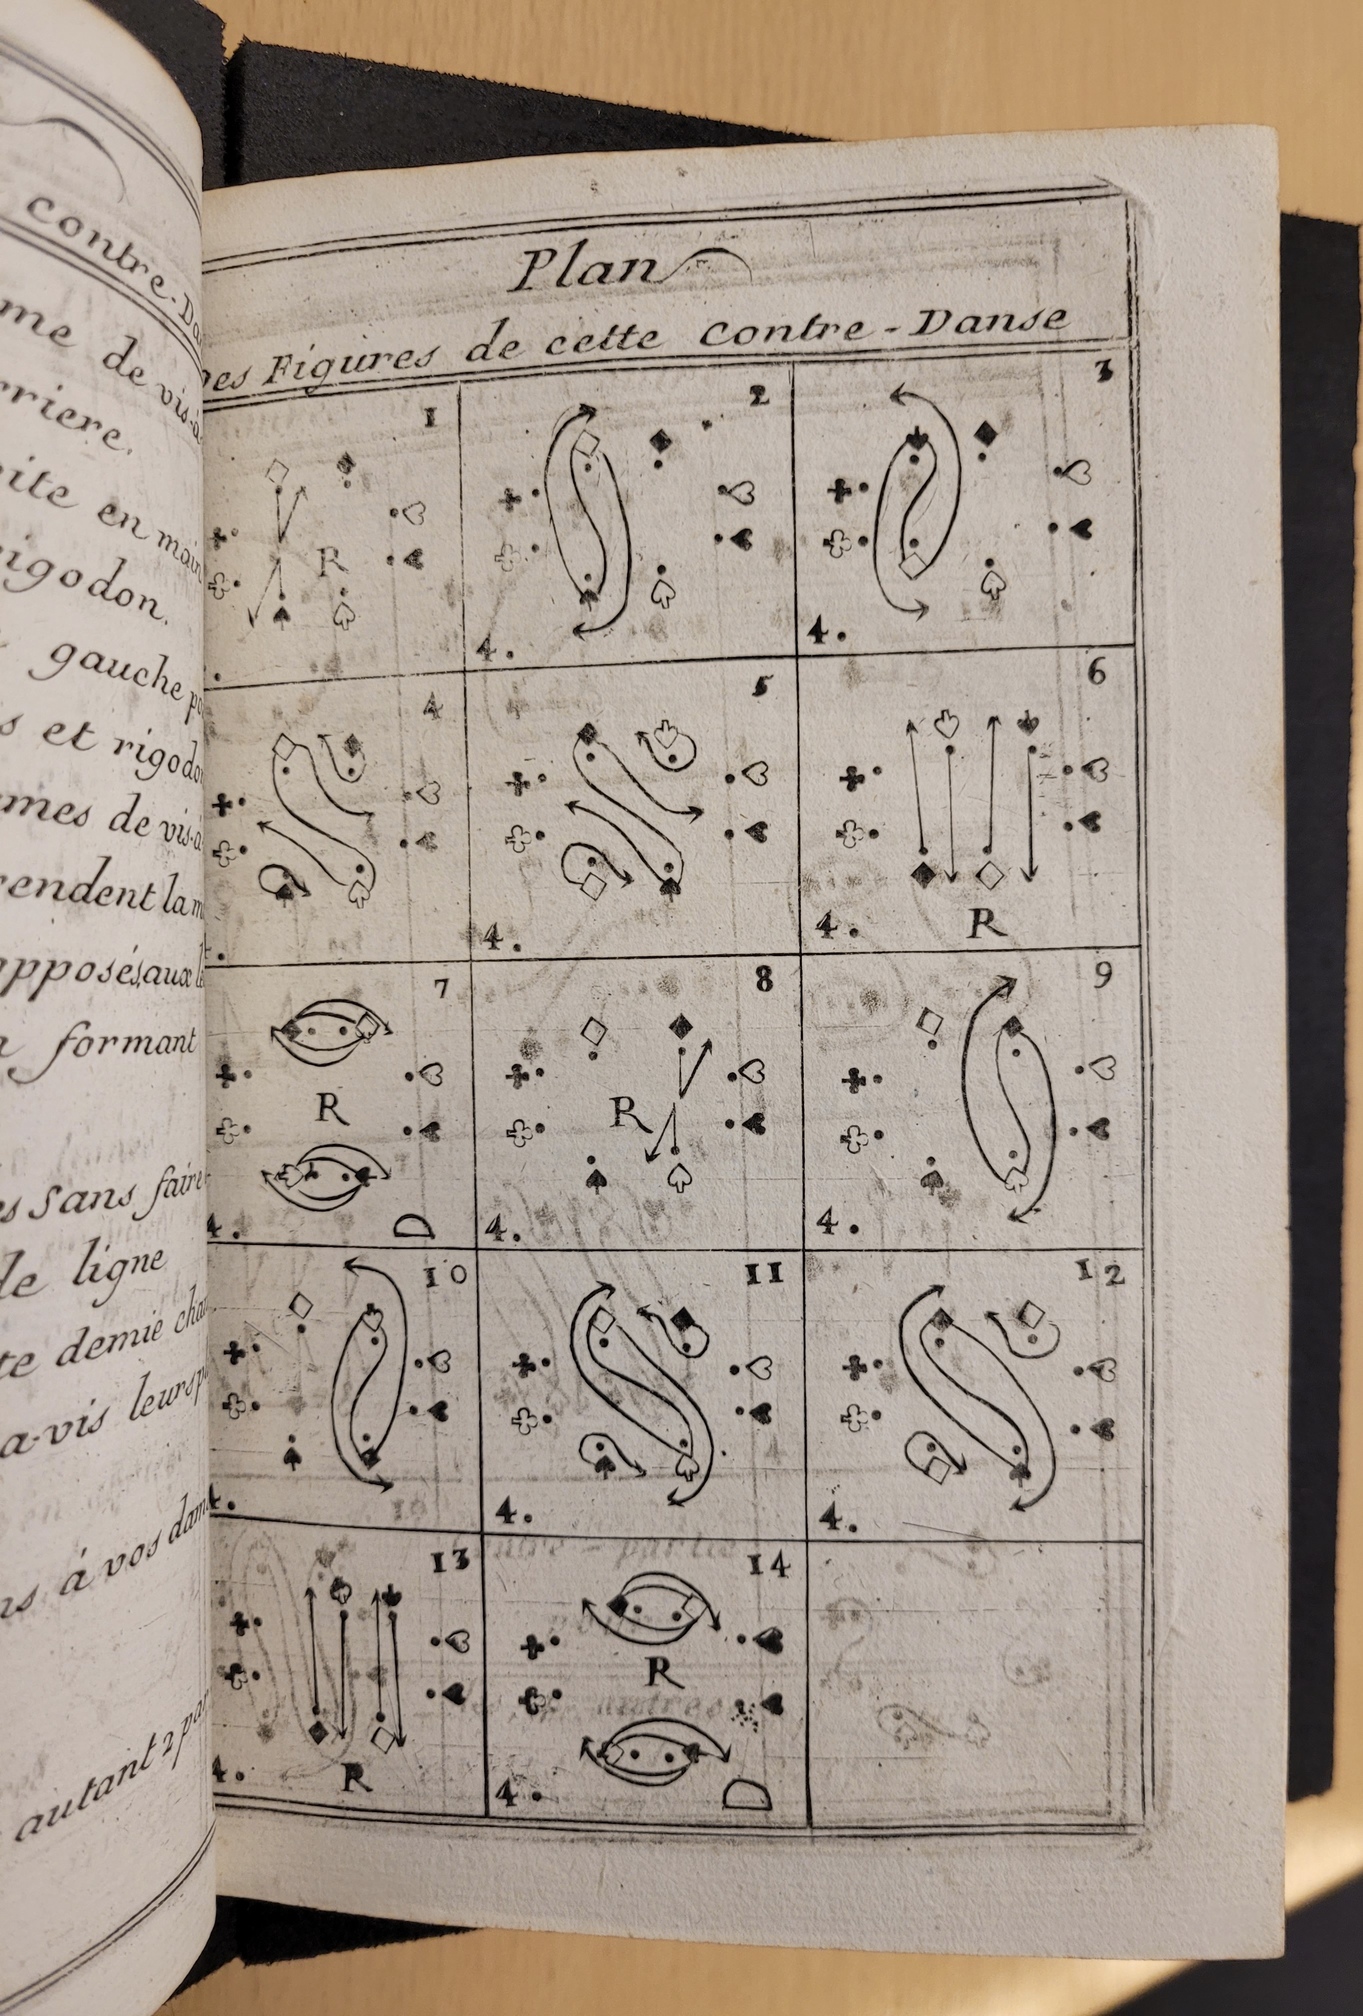 contre-Da
me de vis-à
rriere.
ite en main
rigodon.
gauche
s et rigodo
mes de vis-à
rendent la m
opposés, aux
a formant
es sans faire
de ligne
te demie cha
a-vis leurs p
ns á vos dam
autant 2 par
Plan
Des Figures de cette Contre-Danse
1
R
2
4.
3
4.
4
5
4.
6
4. R
7
R
4. D
8
R
4.
9
4.
10
4.
11
4.
12
4.
13
4. R
14
R
4. D